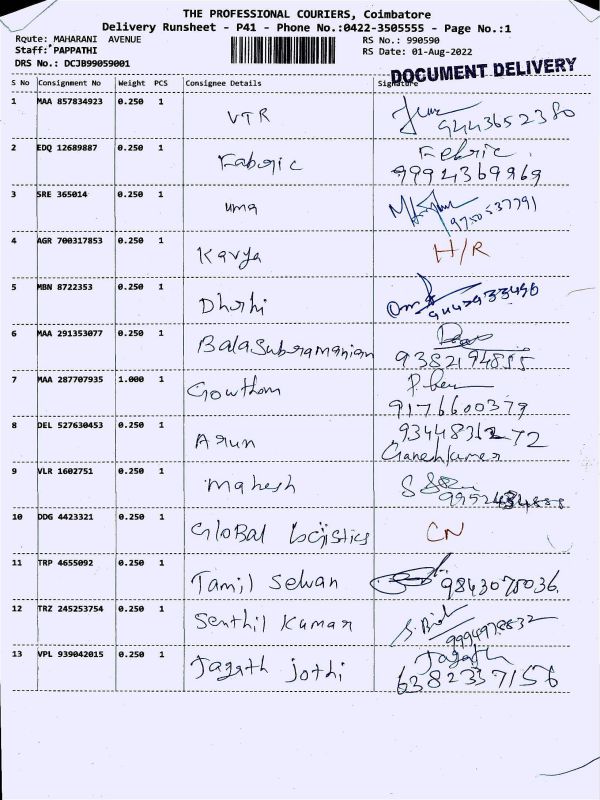 THE PROFESSIONAL COURIERS, Coimbatore
Delivery Runsheet - P41 - Phone No.:0422-3505555 - Page No.:1
Route: MAHARANI AVENUE
RS No.: 990590
Staff: PAPPATHI
RS Date: 01-Aug-2022
DRS No.: DCJB99059001
DOCUMENT DELIVERY
S No Consignment No Weight PCS Consignee Details Signature
1 MAA 857834923 0.250 1 VTR
9443652380
2 EDQ 12689887 0.250 1 Faboric Febric
9994369969
3 SRE 365014 0.250 1 uma
9750537791
4 AGR 700317853 0.250 1 Kavya H/R
5 MBN 8722353 0.250 1 Dhothi
9443933496
6 MAA 291353077 0.250 1 BalaSubramaniam
9382194855
7 MAA 287707935 1.000 1 Gowtham
9176600379
8 DEL 527630453 0.250 1 Arun
Ganeshkumar
9 VLR 1602751 0.250 1 Mahesh
10 DDG 4423321 0.250 1 Global Logistics CN
11 TRP 4655092 0.250 1 Tamil Selvan 9843070036.
12 TRZ 245253754 0.250 1 Senthil Kumar
9994978832
13 VPL 939042015 0.250 1 Jagath Jothi Jagath
6382337156